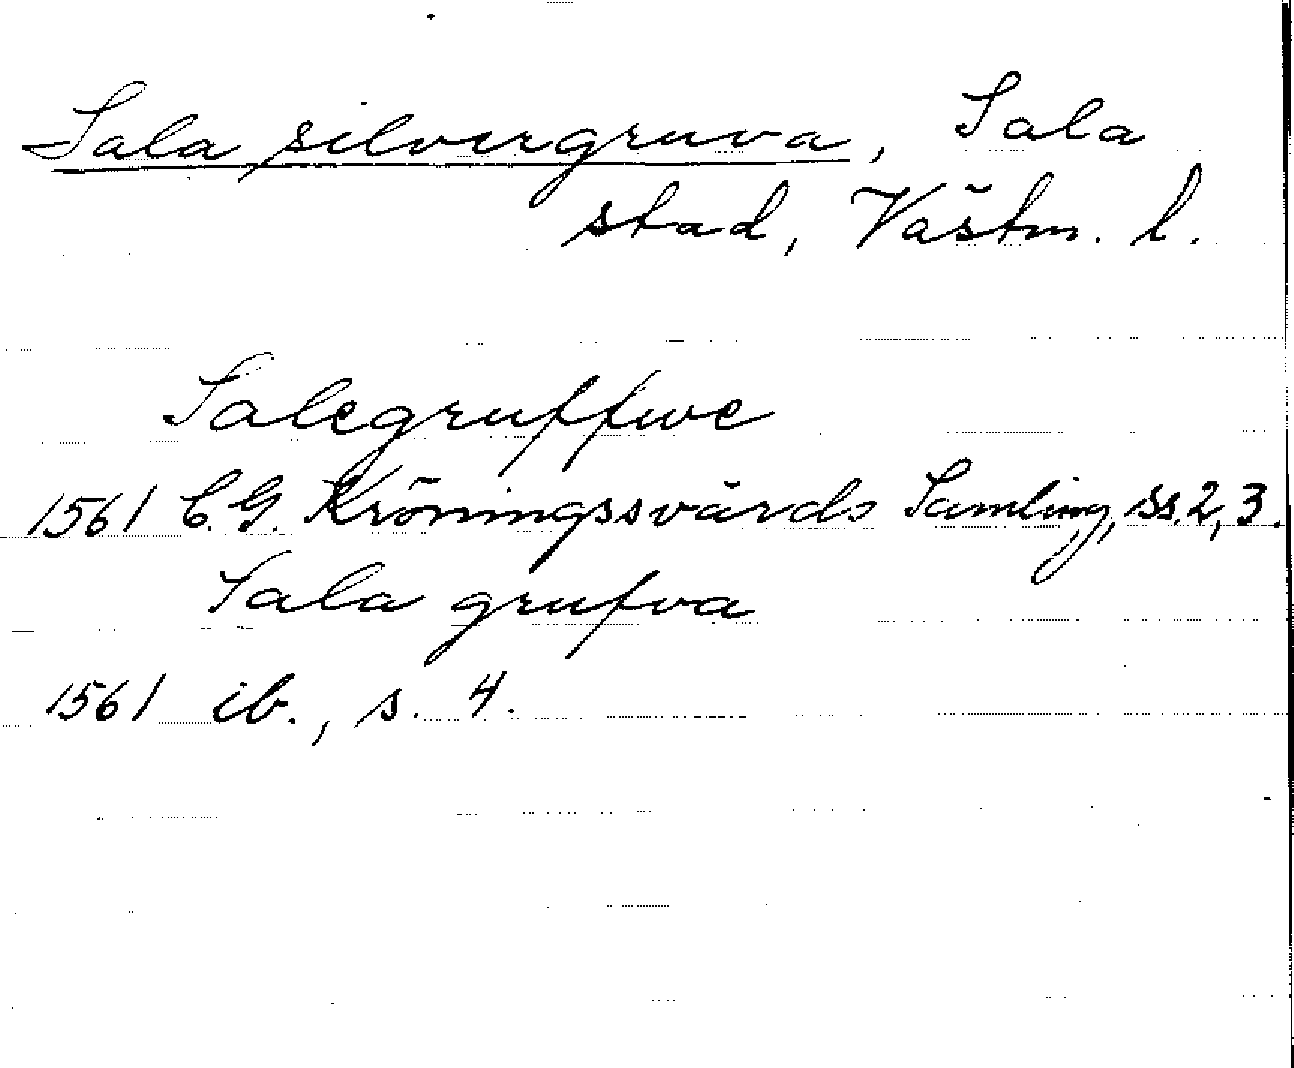 Sala silvergruva, Sala
stad, Västm. l.
Salegruffwe
1561 C.G. Kröningssvärds Samling, ss. 2, 3.
Sala grufva
1561 ib., s. 4.